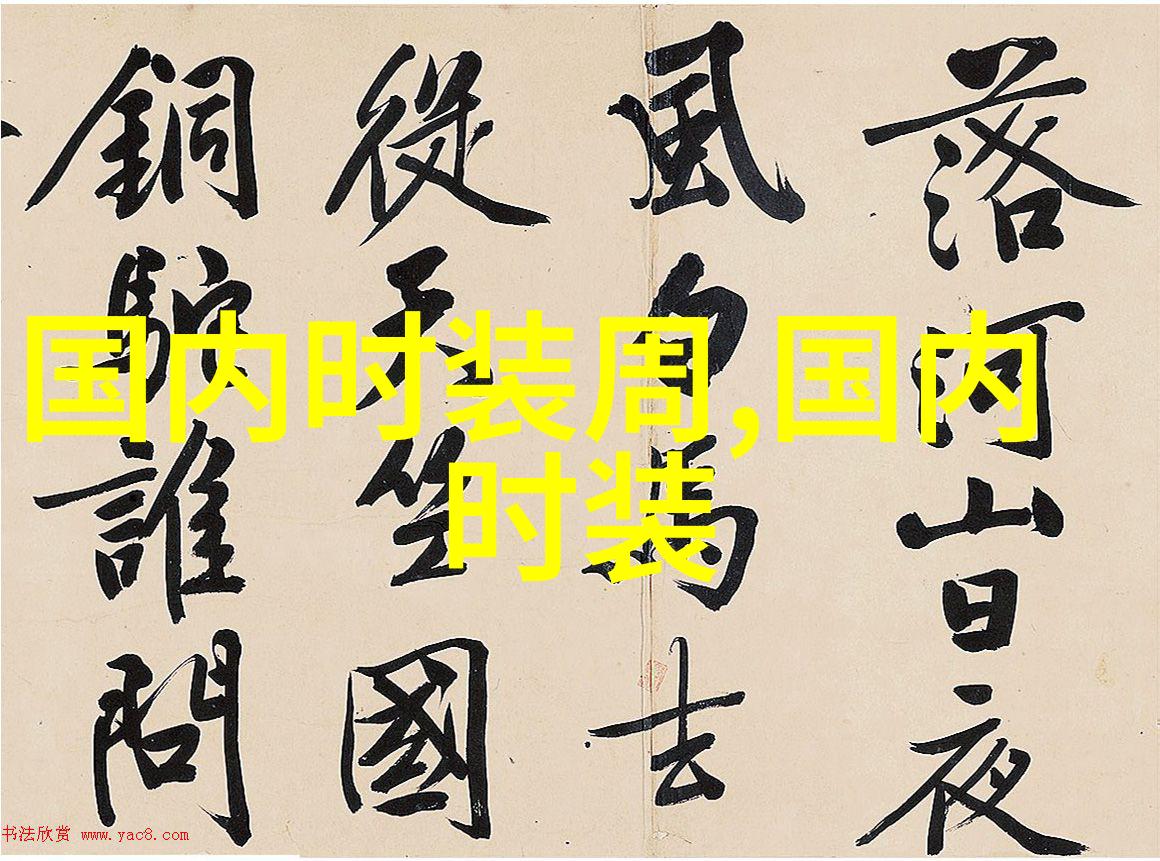 落河山日夜
風白馬去
從天竺國
銅駝誰問
国内时装周,国内
时装
书法欣赏 www.yac8.com